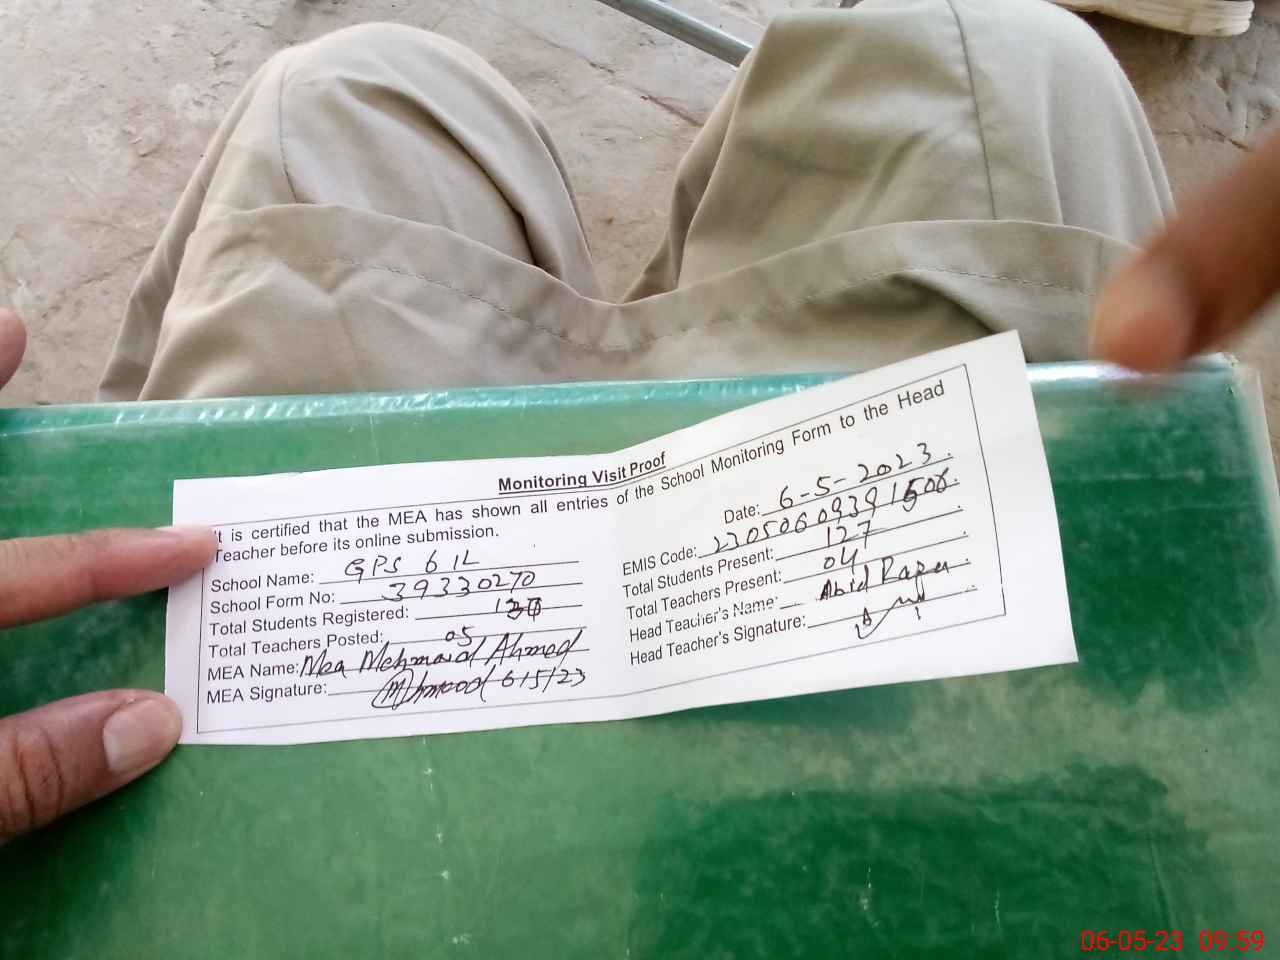 Monitoring Visit Proof
It is certified that the MEA has shown all entries of the School Monitoring Form to the Head
Teacher before its online submission.
School Name: GPS 61L
School Form No: 39330270
Total Students Registered:
Total Teachers Posted: 05
MEA Name: Mea Mehmood Ahmed
MEA Signature: Mehmood 6/5/23
Date: 6-5-2023.
EMIS Code:
Total Students Present: 127
Total Teachers Present: 04
Head Teacher's Name: Abid Raza
Head Teacher's Signature:
06-05-23 09:59